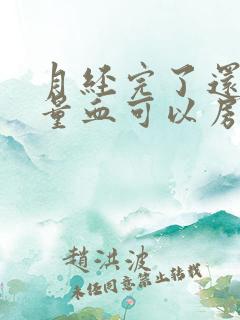 月經完了還
量血可以房
趙洪波
未經同意禁止轉載